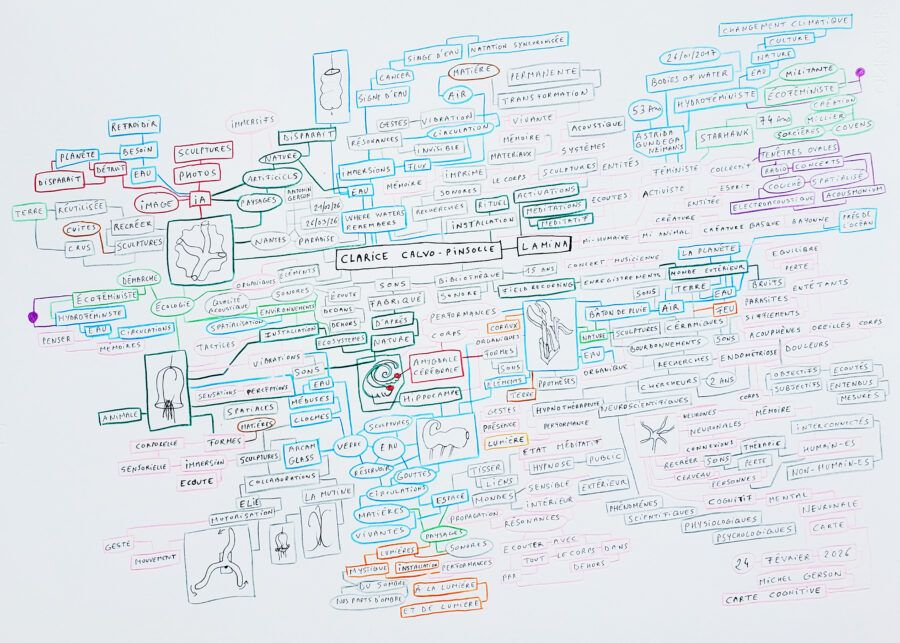 CHANGEMENT CLIMATIQUE
CULTURE
NATURE
EAU
26/01/2017
BODIES OF WATER
HYDROFÉMINISTE
MILITANTE
ÉCOFÉMINISTE
CRÉATION
74 ANS
MILLIER
SORCIÈRES
COVENS
STARHAWK
53 ANS
ASTRIDA
NEIMANIS
FÉMINISTE
COLLECTIF
ACTIVISTE
ESPRIT
ENTITÉE
FENÊTRES OVALES
RADIO
CONCERTS
COUCHÉ
SPATIALISÉ
ELECTROACOUSTIQUE
ACOUSMONIUM
SINGE D'EAU
NATATION SYNCHRONISÉE
CANCER
SIGNE D'EAU
MATIÈRE
PERMANENTE
TRANSFORMATION
AIR
GESTES
VIBRATION
VIVANTE
RÉSONANCES
CIRCULATION
INVISIBLE
MÉMOIRE
MATERIAUX
ACOUSTIQUE
SYSTÈMES
IMMERSIONS
FLUX
MÉMOIRE
IMPRIME
LE CORPS
SCULPTURES
ENTITÉS
EAU
SONORES
RECHERCHES
RITUEL
ACTIVATIONS
MEDITATIONS
MEDITATIF
ÉCOUTES
INSTALLATION
WHERE WATERS
REMEMBERS
IMMERSIFS
DISPARAIT
NATURE
ARTIFICIELS
PAYSAGES
ANTONIN
GERSON
26/03/26
NANTES
PARADISE
REFROIDIR
PLANÈTE
BESOIN
DISPARAIT
DÉTRUIT
EAU
SCULPTURES
PHOTOS
IMAGE
IA
TERRE
RÉUTILISÉE
CUITES
CRUS
RECRÉER
SCULPTURES
CLARICE CALVO-PINSOLLE
LAMINA
MI-HUMAINE
MI ANIMAL
CRÉATURE
CRÉATURE BASQUE
BAYONNE
PRÈS DE
L'OCÉAN
DÉMARCHE
ÉCOFÉMINISTE
HYDROFÉMINISTE
ÉCOLOGIE
PENSER
EAU
CIRCULATIONS
MÉMOIRES
ORGANIQUES
ÉLÉMENTS
QUALITÉ
ACOUSTIQUE
SONORES
ENVIRONNEMENTS
SPATIALISATION
INSTALLATION
TACTILES
SONS
FABRIQUE
ÉCOUTE
DEDANS
DEHORS
ECOSYSTÈMES
D'APRÈS
NATURE
BIBLIOTHÈQUE
SONORE
15 ANS
FIELD RECORDING
CONCERT
MUSICIENNE
ENREGISTREMENTS
LA PLANÈTE
MONDE EXTÉRIEUR
SONS
TERRE
EAU
BÂTON DE PLUIE
AIR
FEU
BRUITS
PARASITES
SIFFLEMENTS
EQUILIBRE
PERTE
ENTÊTANTS
PERFORMANCES
CORPS
CORAUX
ORGANIQUES
FORMES
SONS
ÉLÉMENTS
TERRE
NATURE
SCULPTURES
CÉRAMIQUES
EAU
BOURDONNEMENTS
SONS
ACOUPHÈNES
OREILLES
CORPS
ORGANIQUE
RECHERCHES
ENDOMÉTRIOSE
DOULEURS
PROTHÈSES
CHERCHEURS
2 ANS
NEUROSCIENTIFIQUES
CORPS
OBJECTIFS
SUBJECTIFS
ECOUTÉS
ENTENDUS
MESURÉS
AMYGDALE
CÉRÉBRALE
HIPPOCAMPE
VIBRATIONS
SONS
SENSATIONS
PERCEPTIONS
EAU
MÉDUSES
CLOCHES
ANIMALE
SPATIALES
MATIÈRES
CORPORELLE
FORMES
SCULPTURES
ARCAM
GLASS
SENSORIELLE
IMMERSION
ECOUTE
COLLABORATIONS
ELIE
MOTORISATION
LA MUTINE
GESTE
MOUVEMENT
SCULPTURES
VERRE
EAU
RÉSERVOIR
GOUTTES
CIRCULATIONS
ESPACE
MATIÈRES
VIVANTES
PAYSAGES
SONORES
PROPAGATION
RÉSONANCES
TISSER
LIENS
MONDES
GESTES
PRÉSENCE
LUMIÈRE
HYPNOTHÉRAPEUTE
PERFORMANCE
ETAT MÉDITATIF
HYPNOSE
PUBLIC
SENSIBLE
INTÉRIEUR
EXTÉRIEUR
NEURONES
NEURONALES
CONNEXIONS
MÉMOIRE
RECRÉER
SONS
THÉRAPIE
CERVEAU
PERTE
PERSONNES
INTERCONNECTÉS
HUMAIN-ES
NON-HUMAIN-ES
PHÉNOMÈNES
SCIENTIFIQUES
COGNITIF
MENTAL
PHYSIOLOGIQUES
PSYCHOLOGIQUES
NEURONALE
CARTE
LUMIÈRES
MYSTIQUE
INSTALLATION
PERFORMANCES
DU SOMBRE
NOS PARTS D'OMBRE
A LA LUMIÈRE
ET DE LUMIÈRE
ECOUTER AVEC
TOUT
LE CORPS
DANS
PAR
DEHORS
24 FÉVRIER 2026
MICHEL GERSON
CARTE COGNITIVE